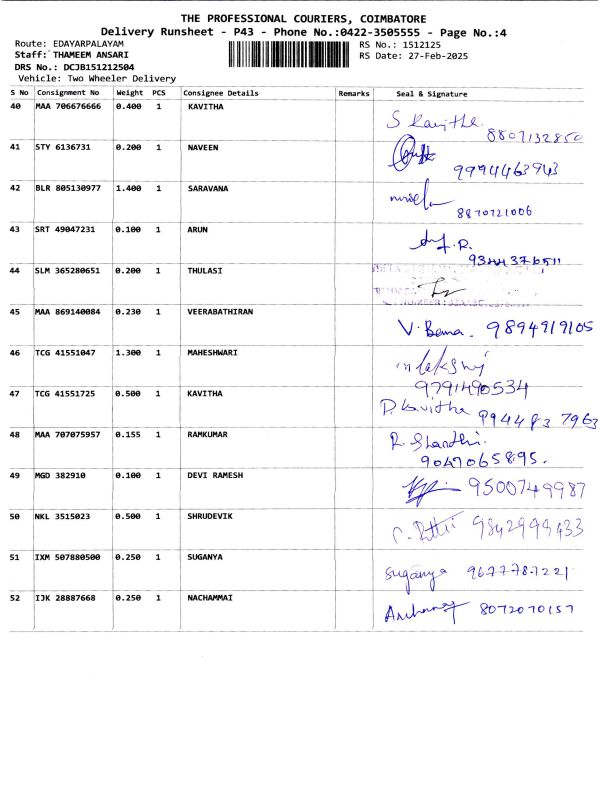 THE PROFESSIONAL COURIERS, COIMBATORE
Delivery Runsheet - P43 - Phone No.:0422-3505555 - Page No.:4
Route: EDAYARPALAYAM RS No.: 1512125
Staff: THAMEEM ANSARI RS Date: 27-Feb-2025
DRS No.: DCJB151212504
Vehicle: Two Wheeler Delivery
S No Consignment No Weight PCS Consignee Details Remarks Seal & Signature
40 MAA 706676666 0.400 1 KAVITHA
S Kavitha. 8807132850
41 STY 6136731 0.200 1 NAVEEN
9994463943
42 BLR 805130977 1.400 1 SARAVANA
8870721006
43 SRT 49047231 0.100 1 ARUN
44 SLM 365280651 0.200 1 THULASI
45 MAA 869140084 0.230 1 VEERABATHIRAN
V. Bema. 9894919105
46 TCG 41551047 1.300 1 MAHESHWARI
9791490534
47 TCG 41551725 0.500 1 KAVITHA
P. Kavitha 994483 7963
48 MAA 707075957 0.155 1 RAMKUMAR
R. Shanthi.
9047065895.
49 MGD 382910 0.100 1 DEVI RAMESH
9500749987
50 NKL 3515023 0.500 1 SHRUDEVIK
9842999433
51 IXM 507880500 0.250 1 SUGANYA
Suganya 9677787221
52 IJK 28887668 0.250 1 NACHAMMAI
8072070157